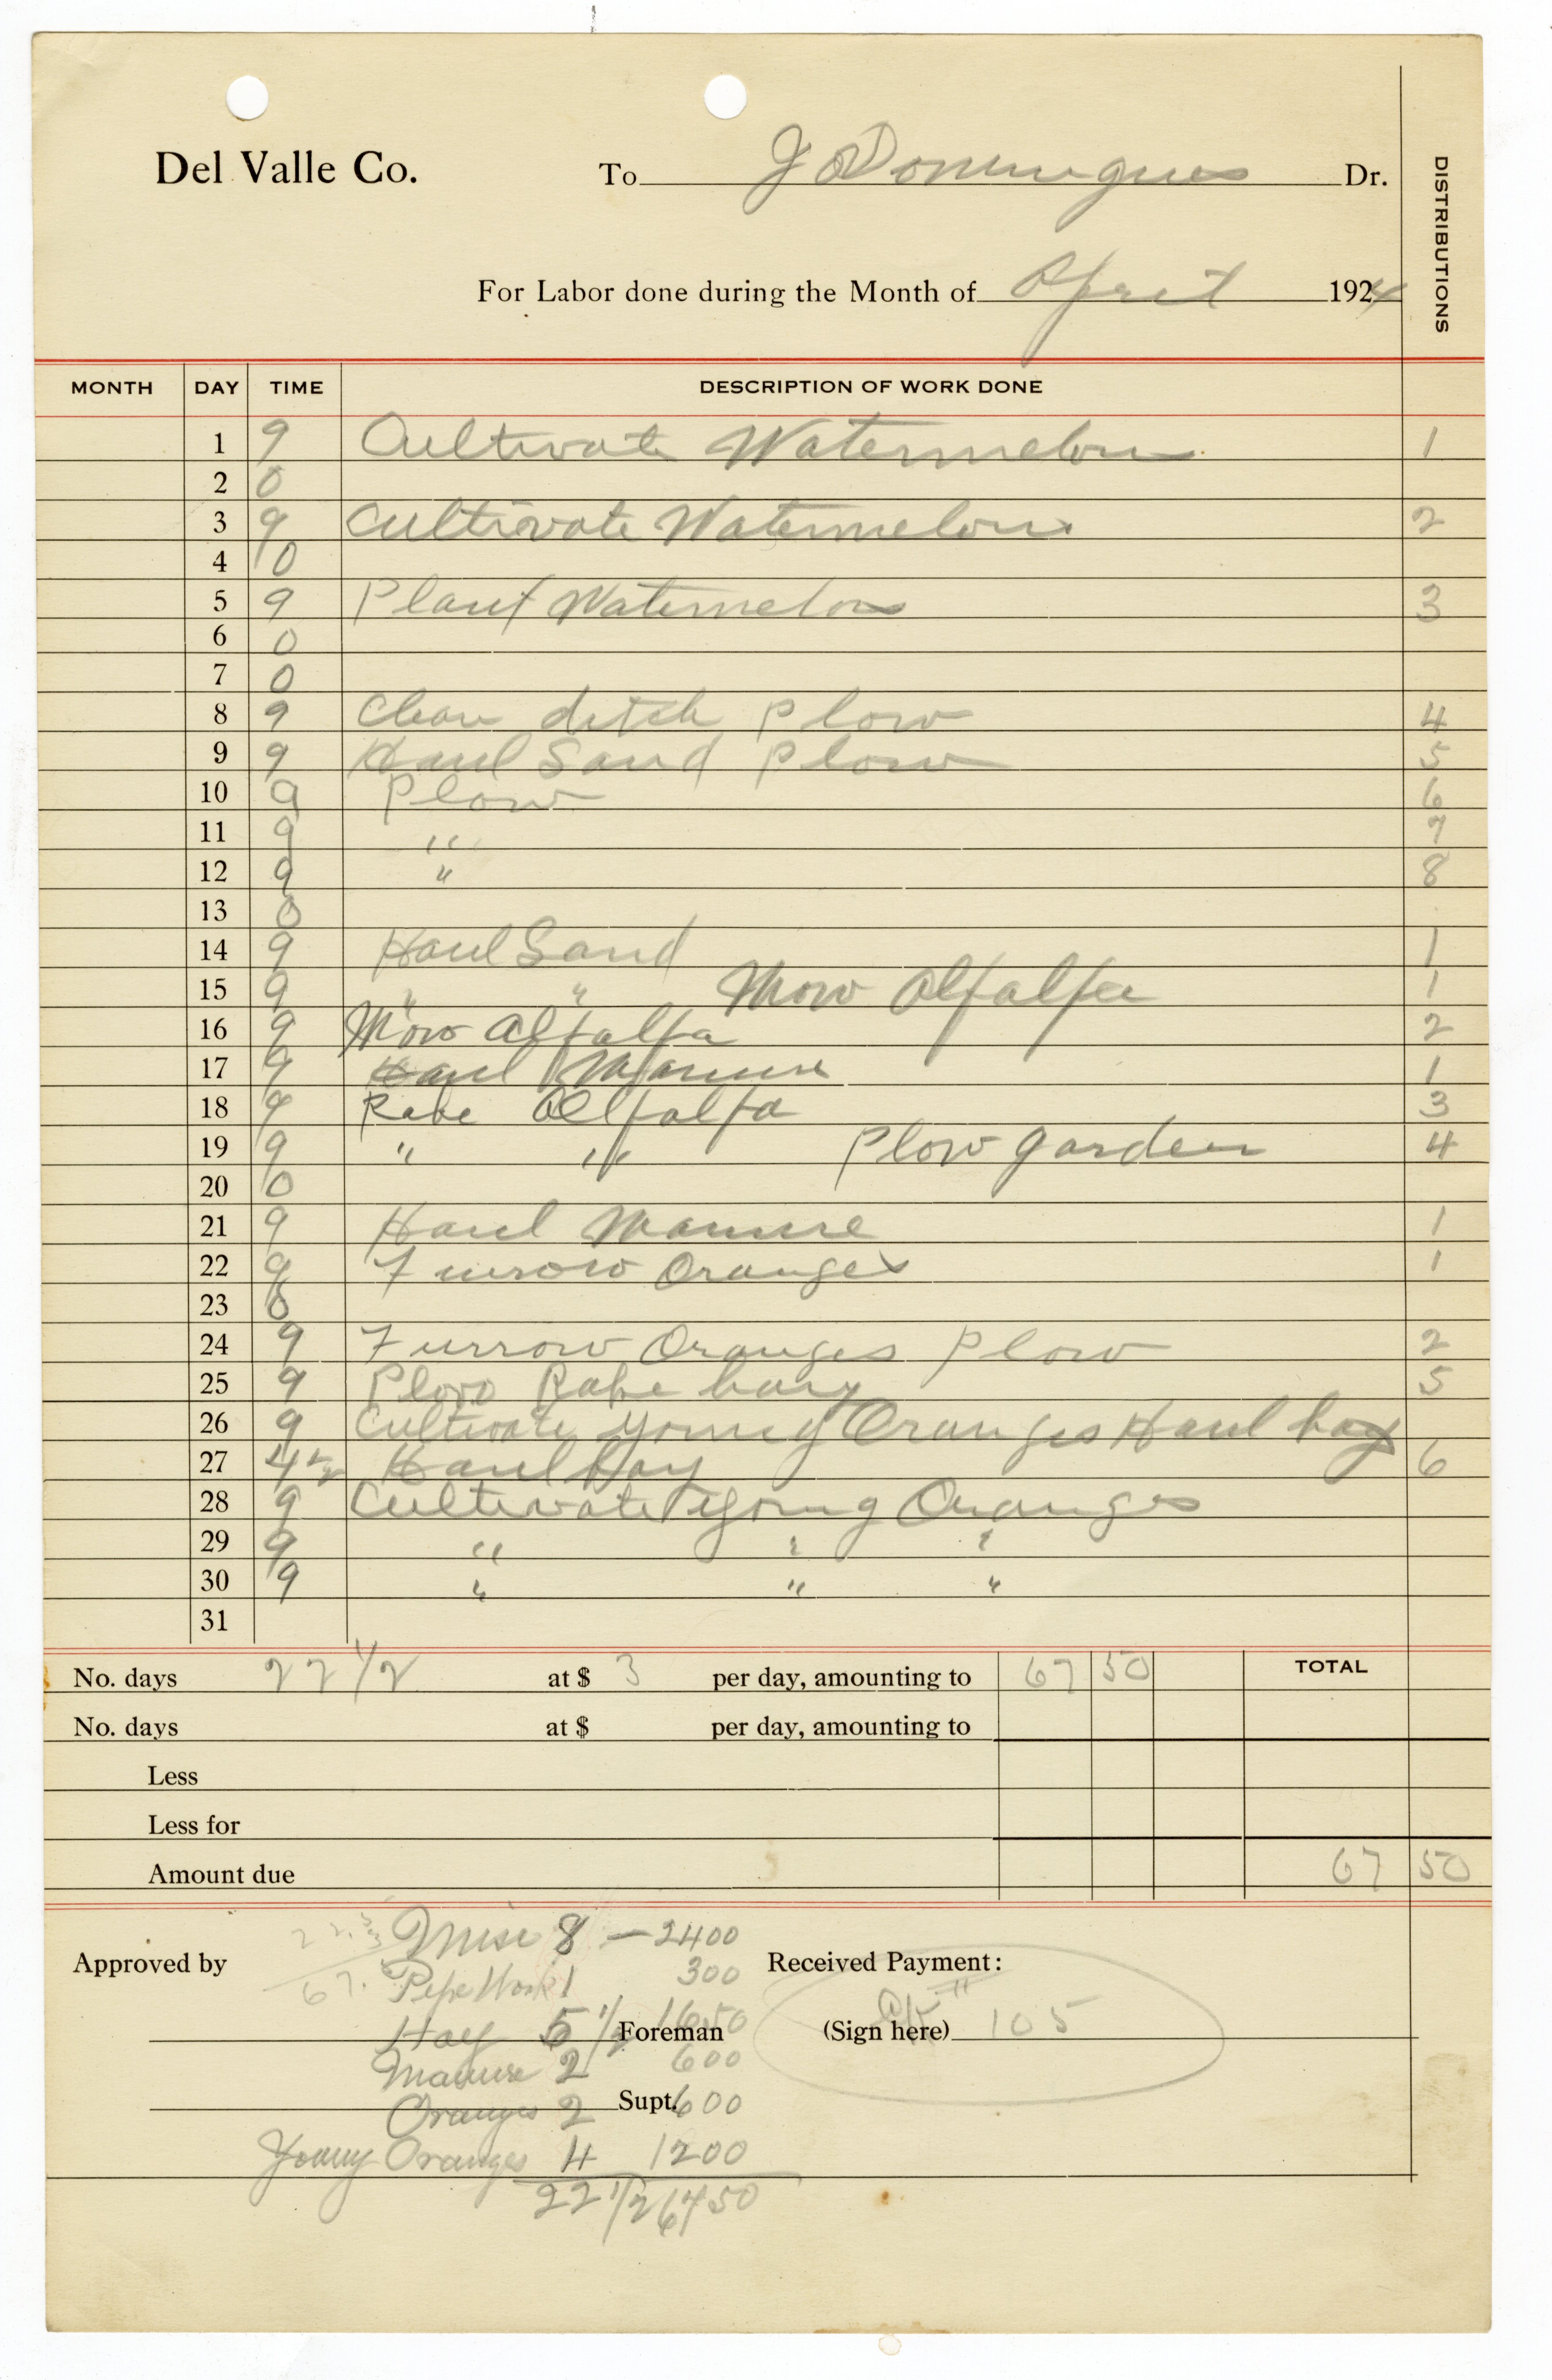 Del Valle Co. To J Domingues Dr.
DISTRIBUTIONS
For Labor done during the Month of April 1924
MONTH DAY TIME DESCRIPTION OF WORK DONE
1 9 Cultivate Watermelon 1
2 0
3 9 Cultivate Watermelon 2
4 0
5 9 Plant Watermelon 3
6 0
7 0
8 9 Clean ditch Plow 4
9 9 Haul Sand Plow 5
10 9 Plow 6
11 9 " 7
12 9 " 8
13 0
14 9 Haul Sand 1
15 9 " " Mow Alfalfa 1
16 9 Mow Alfalfa 2
17 9 Haul Manure 1
18 9 Rake Alfalfa 3
19 9 " " Plow garden 4
20 0
21 9 Haul Manure 1
22 9 Furrow Oranges 1
23 0
24 9 Furrow Oranges Plow 2
25 9 Plow Rake hay 5
26 9 Cultivate young Oranges Haul hay
27 4 1/2 Haul Hay 6
28 9 Cultivate Young Oranges
29 9 " " "
30 9 " " "
31
No. days 22 1/2 at $ 3 per day, amounting to 67 50 TOTAL
No. days at $ per day, amounting to
Less
Less for
Amount due 67 50
22.5
3
67.5
Misc 8 — 2400
Approved by
Pipe Work 1 300
Received Payment:
Hay 5 1/2 1650
Foreman
(Sign here) 105
Manure 2 600
Oranges 2 600
Supt.
Young Oranges 4 1200
22 1/2 6750